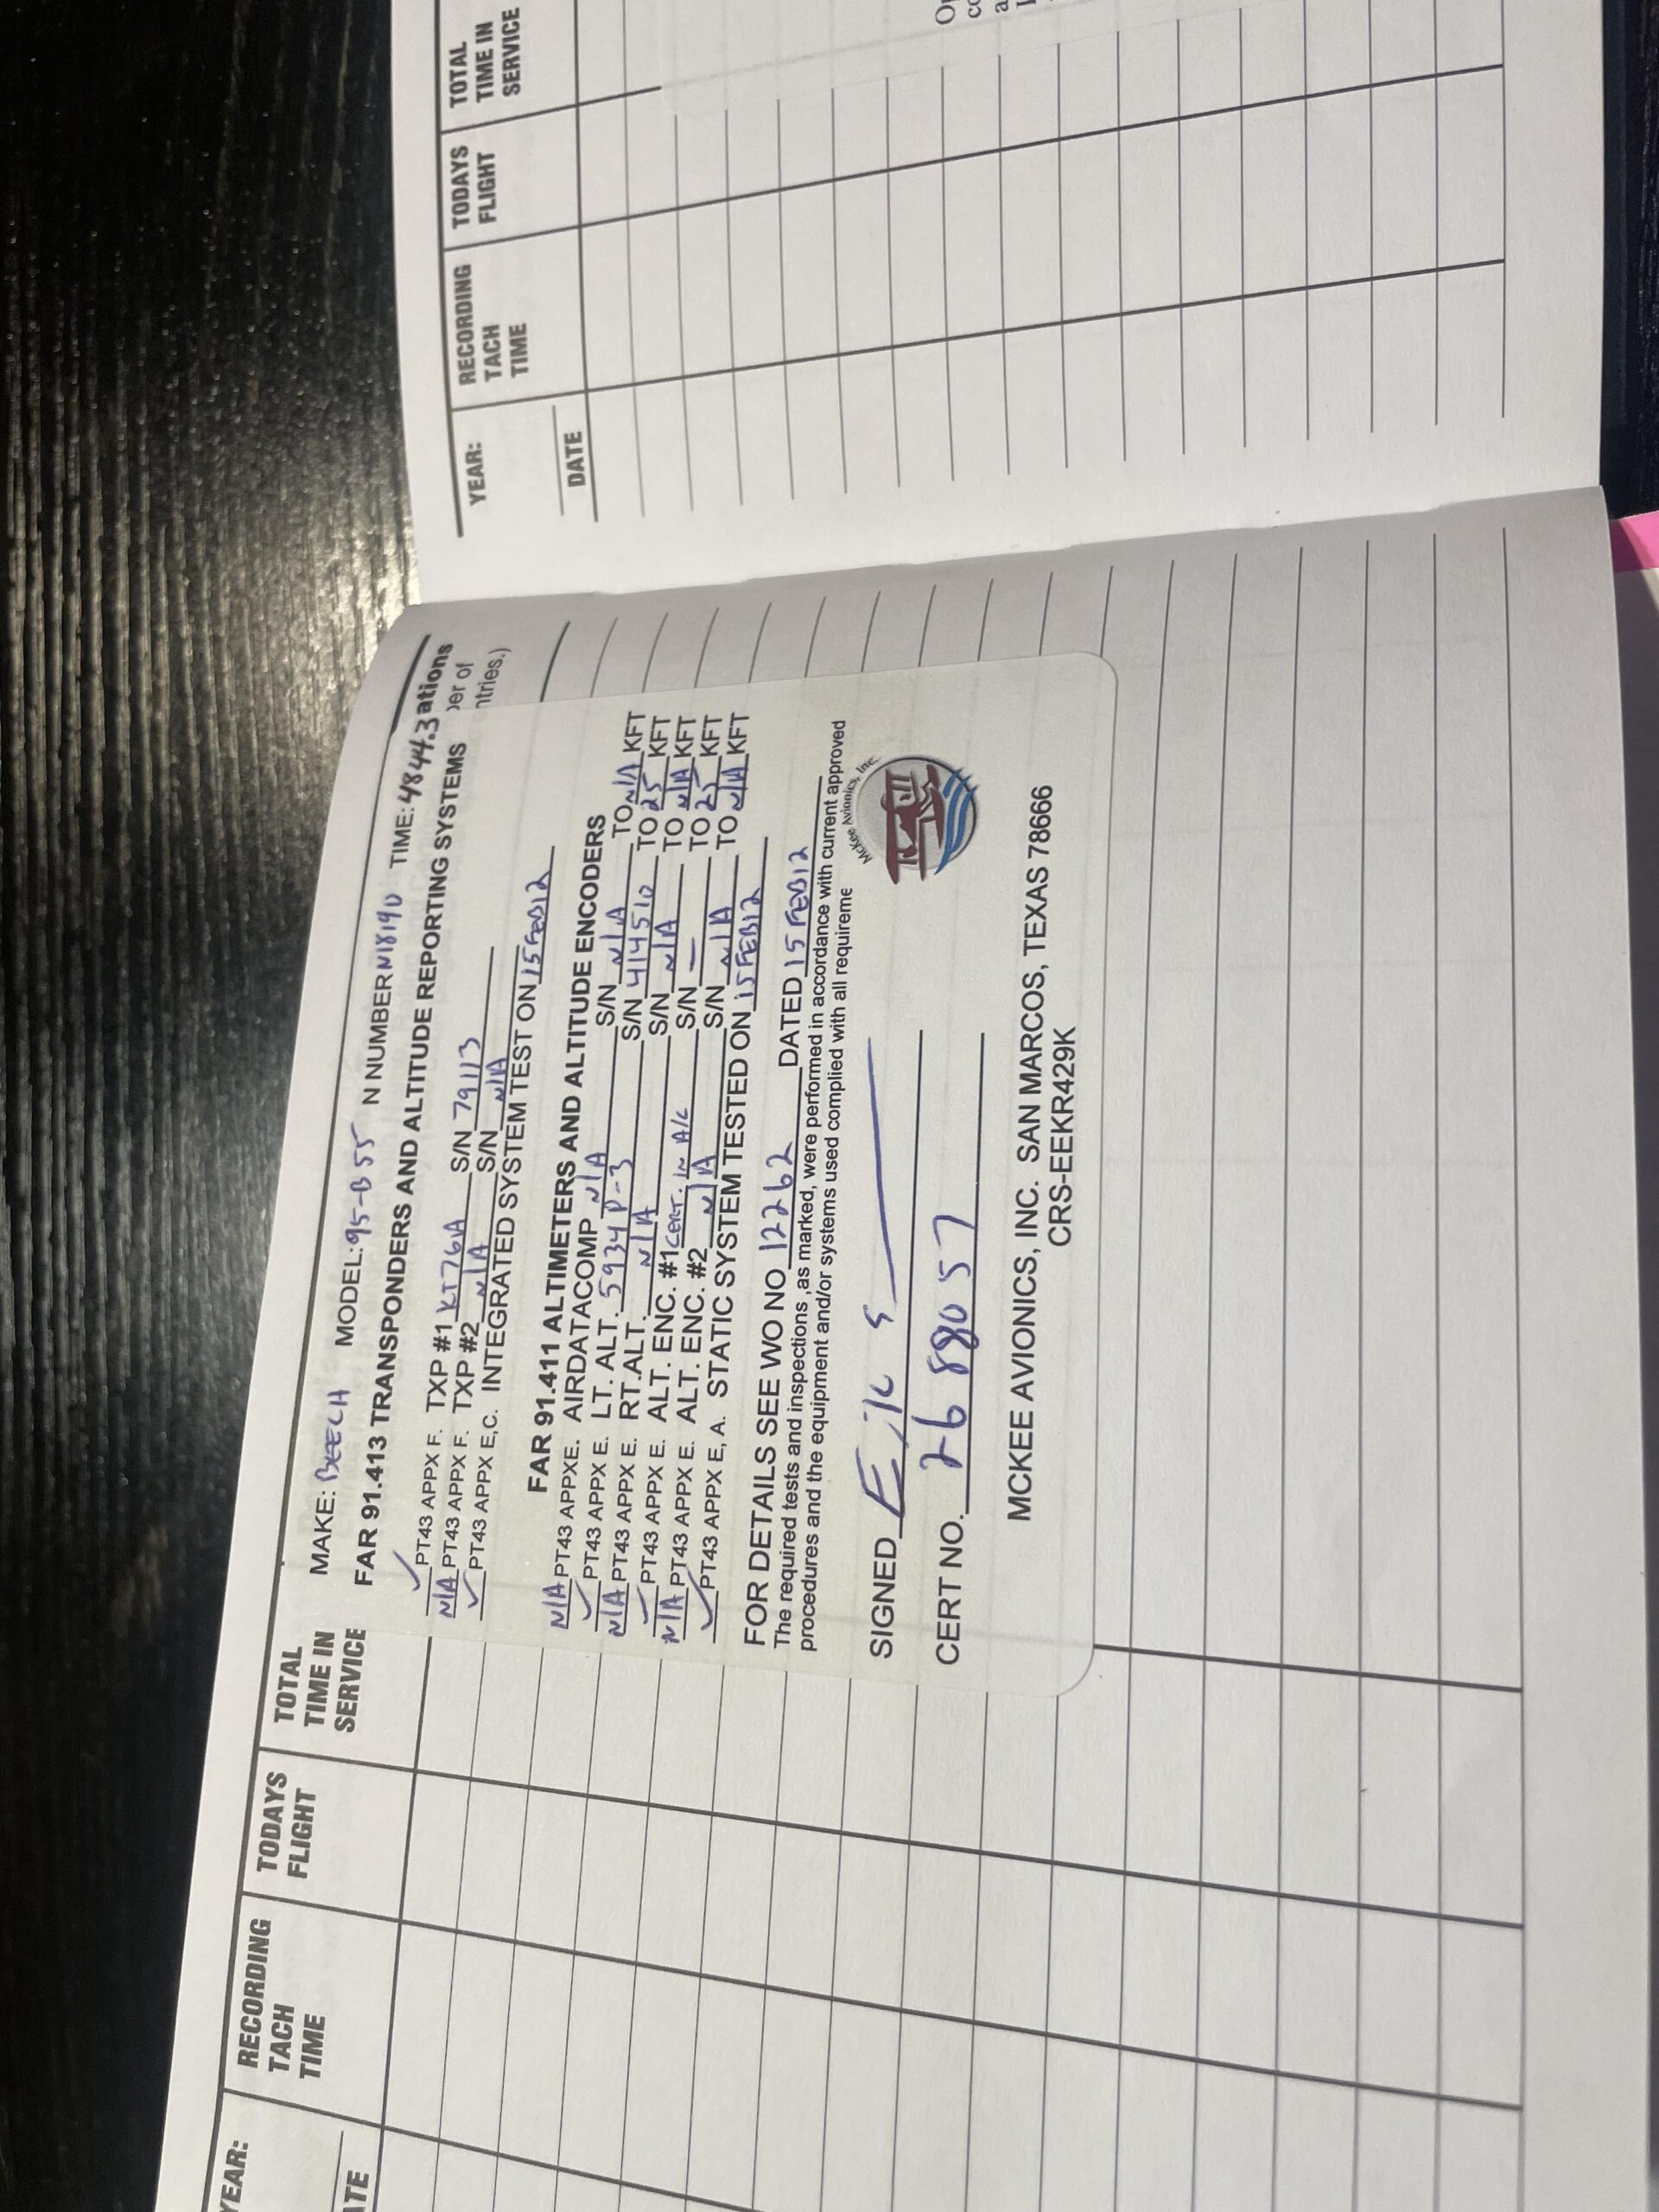 YEAR:
DATE
RECORDING
TACH
TIME
TODAYS
FLIGHT
TOTAL
TIME IN
SERVICE
MAKE: BEECH MODEL: 95-B55 N NUMBER N18190 TIME: 4844.3 ations
FAR 91.413 TRANSPONDERS AND ALTITUDE REPORTING SYSTEMS
ntries.)
✓ PT43 APPX F. TXP #1 KT76A S/N 79113
N/A PT43 APPX F. TXP #2 N/A S/N N/A
✓ PT43 APPX E,C. INTEGRATED SYSTEM TEST ON 15FEB12
FAR 91.411 ALTIMETERS AND ALTITUDE ENCODERS
N/A PT43 APPXE. AIRDATACOMP N/A S/N N/A TO N/A KFT
✓ PT43 APPX E. LT. ALT. 5934P-3 S/N 414510 TO 25 KFT
N/A PT43 APPX E. RT.ALT. N/A S/N N/A TO N/A KFT
✓ PT43 APPX E. ALT. ENC. #1 CERT. IN A/C S/N — TO 25 KFT
N/A PT43 APPX E. ALT. ENC. #2 N/A S/N N/A TO N/A KFT
✓ PT43 APPX E, A. STATIC SYSTEM TESTED ON 15FEB12
FOR DETAILS SEE WO NO 12262 DATED 15FEB12
The required tests and inspections ,as marked, were performed in accordance with current approved
procedures and the equipment and/or systems used complied with all requireme
McKee Avionics, Inc.
SIGNED
CERT NO. 2688057
MCKEE AVIONICS, INC. SAN MARCOS, TEXAS 78666
CRS-EEKR429K
YEAR:
DATE
RECORDING
TACH
TIME
TODAYS
FLIGHT
TOTAL
TIME IN
SERVICE